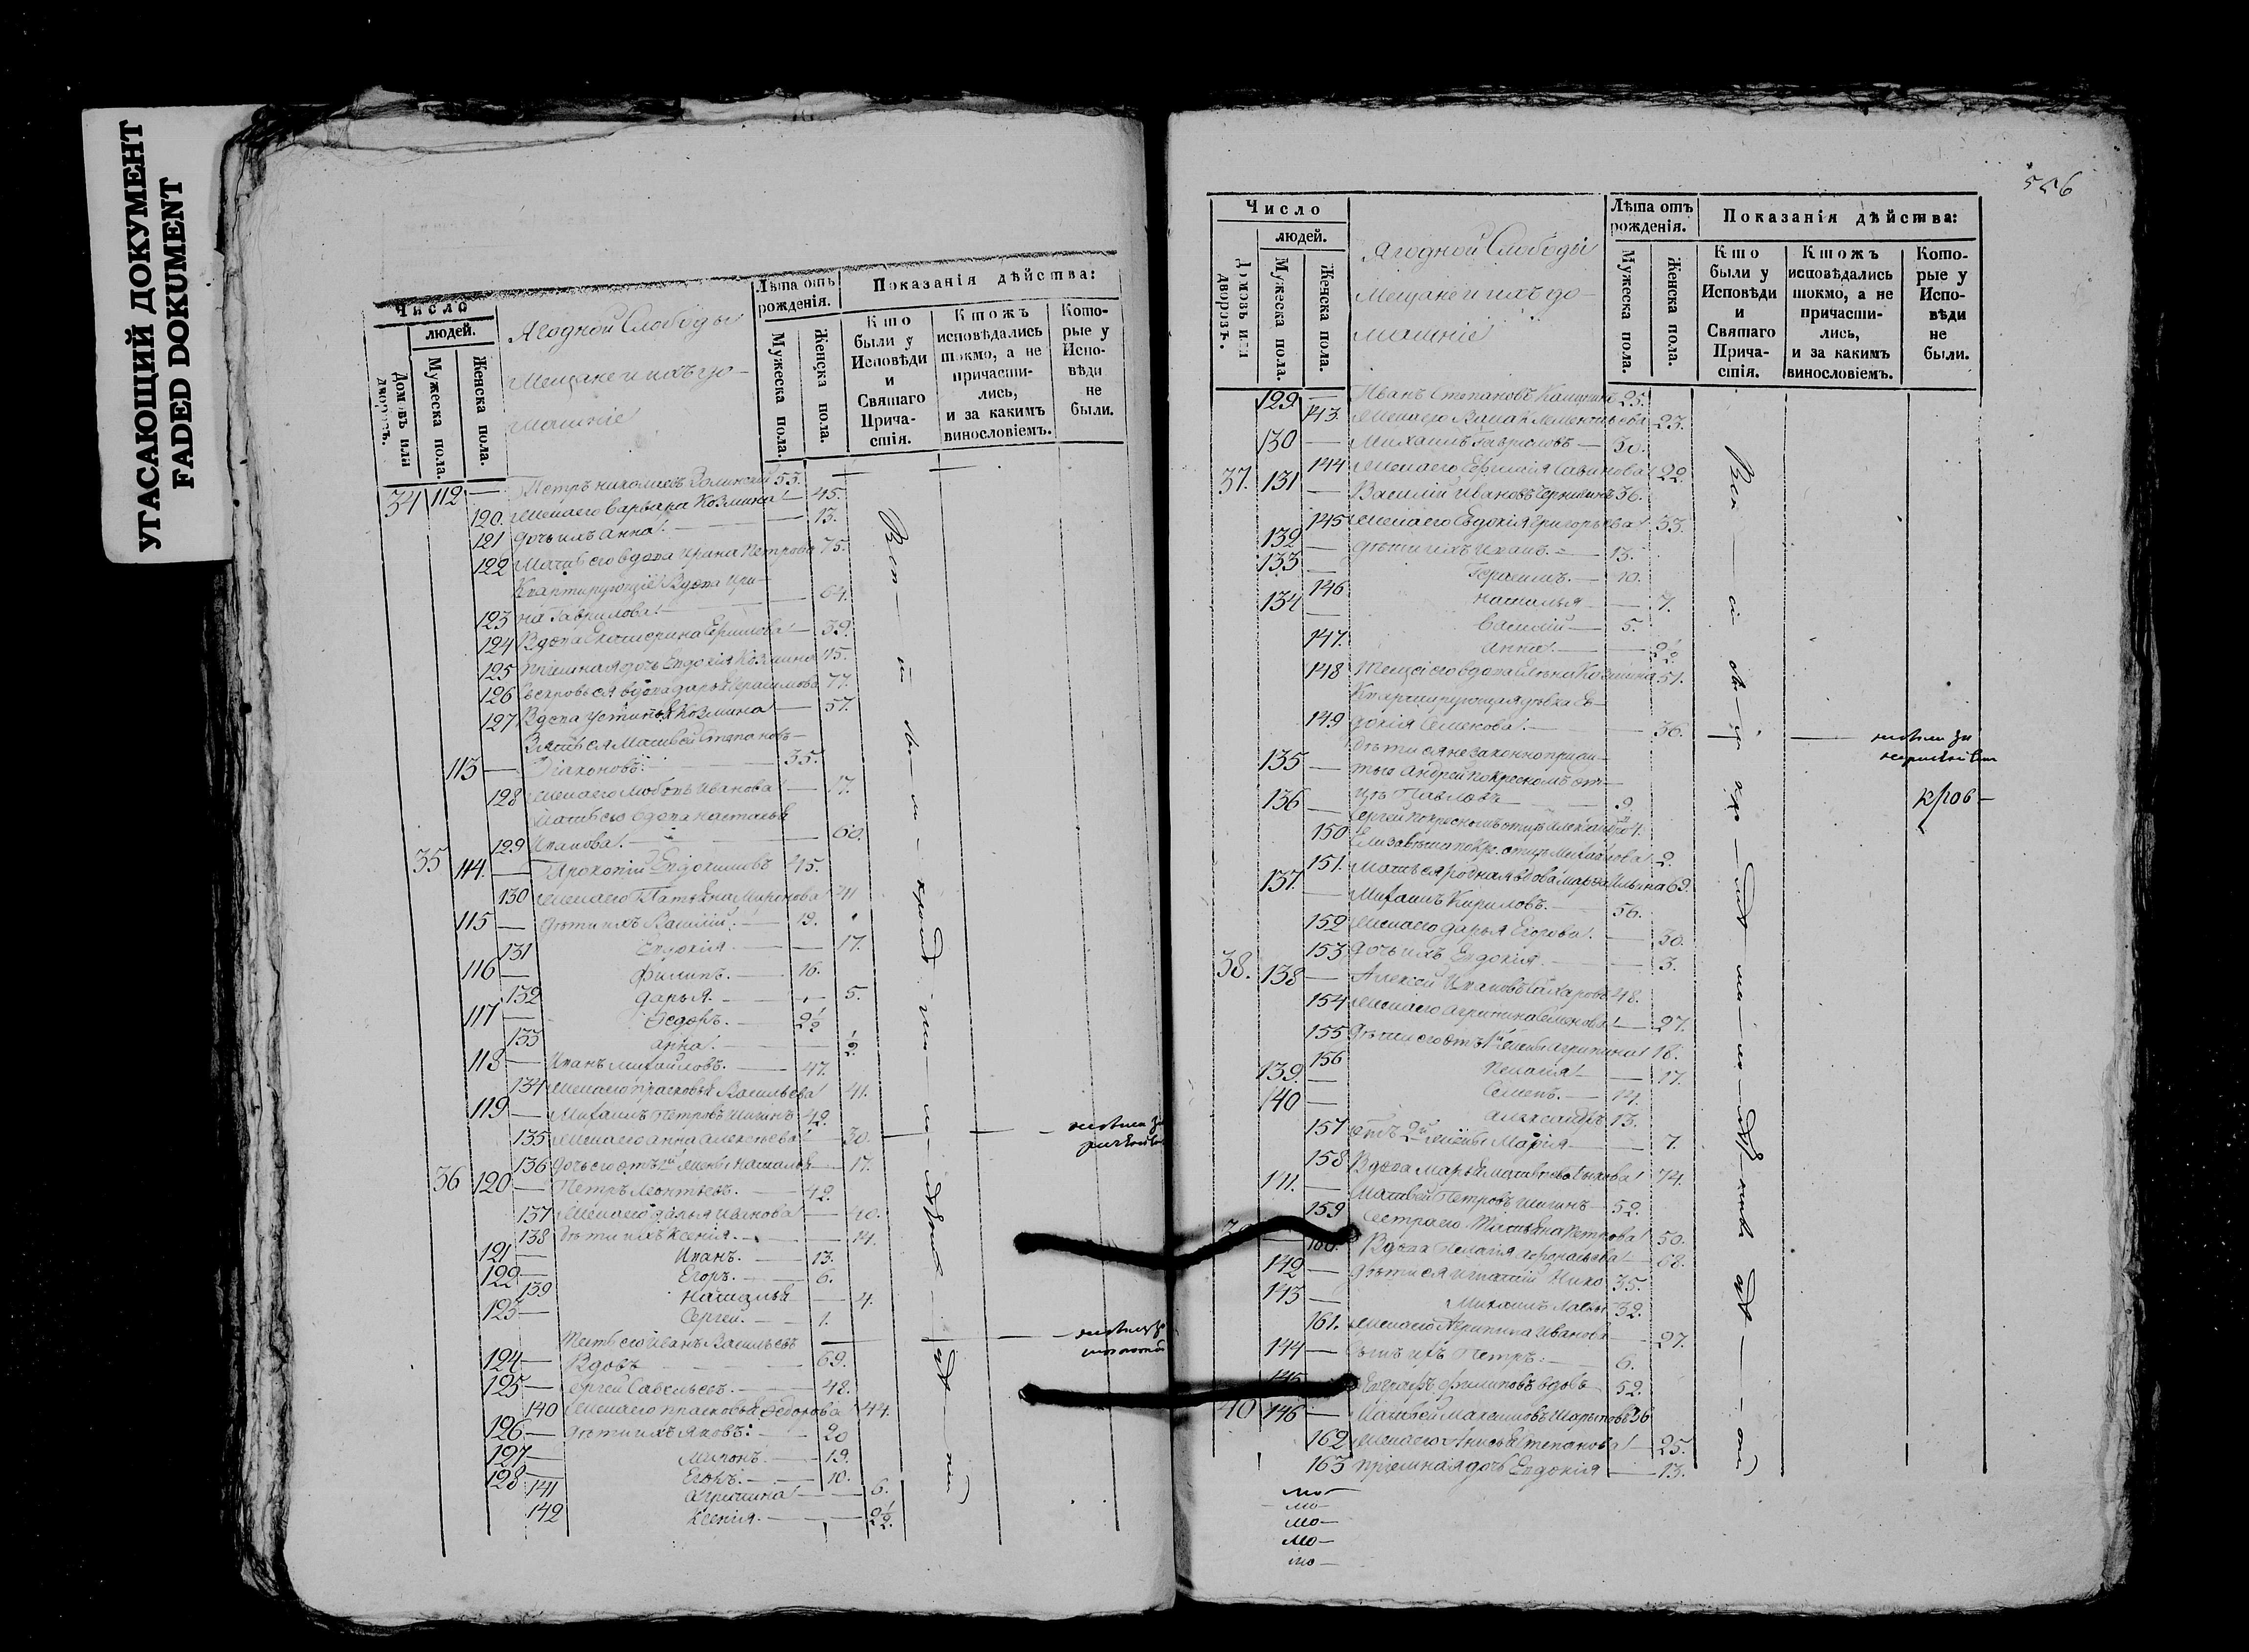 УГАСАЮЩИЙ ДОКУМЕНТ
FADED DOKUMENT
Число
людей.
Домовъ или дворовъ.
Мужеска пола.
Женска пола.
Ягодной Слободы
Мещане и ихъ до-
машніе
Лѣта отъ рожденія.
Мужеска пола.
Женска пола.
Показанія дѣйства:
Кто были у Исповѣди и Святаго Прича-стія.
Ктожъ исповѣдались токмо, а не причасти-лись, и за какимъ винословіемъ.
Кото-рые у Испо-вѣди не были.
34 112 — Петръ Николаевъ 53.
120. Жена его Варвара Козмина — 45.
121 Дочь ихъ Анна. — 13.
122 Мать его вдова Ирина Петрова 75.
Квартирующіе Вдова Ири-
123 на Гаврилова — 64.
124 Вдова Екатерина — 39.
125 Пріемная дочь Евдокія Козмина 15.
126 Свекровь ея вдова Дарья Герасимова 77.
127 Вдова Устинья Козмина — 57.
Зять ея Матвей Степановъ
113 — Діаконовъ. — 35.
128 Жена его Любовь Иванова — 17.
Мать его вдова Наталья
129 Иванова. — 60.
35 114. — Прокопій Евдокимовъ 45.
130 Жена его Татьяна Миронова 41
115 — Дѣти ихъ Василій. — 19.
131 Евдокія — 17.
116 — Филипъ. — 16.
132 Дарья. — 5.
117 — Федоръ. — 2½
133 Анна. — ½.
118 — Иванъ Михайловъ. — 47.
134 Жена его Прасковья Васильева 41.
119 — Михаилъ Петровъ Шигинъ 42.
135 Жена его Анна Алексѣева — 30.
136 Дочь его отъ 1й жены Наталья — 17.
36 120 — Петръ Леонтьевъ. — 42.
137 Жена его Дарья Иванова — 40.
138 Дѣти ихъ Ксенія. — 14.
121 — Иванъ. — 13.
122 — Егоръ. — 6.
139 Наталья — 4.
123 — Сергей. — 1.
Тесть его Иванъ Васильевъ
124 — Вдовъ — 69.
125 — Сергей Савельевъ. — 48.
140 Жена его Прасковья Федорова 44.
126 — Дѣти ихъ Яковъ: — 20
127 — Миронъ. — 19.
128 — Егоръ: — 10.
141 Агрипина — 6.
142 Ксенія. — 2½.
556
Число
людей.
Домовъ или дворовъ.
Мужеска пола.
Женска пола.
Ягодной Слободы
Мещане и ихъ до-
машніе
Лѣта отъ рожденія.
Мужеска пола.
Женска пола.
Показанія дѣйства:
Кто были у Исповѣди и Святаго Прича-стія.
Ктожъ исповѣдались токмо, а не причасти-лись, и за какимъ винословіемъ.
Кото-рые у Испо-вѣди не были.
129 — Иванъ Степановъ 25.
143. Жена его 23.
130 — Михаилъ Гавриловъ — 30.
144 Жена его Ефимія 22.
37. 131 — Василій Ивановъ 36.
145 Жена его Евдокія Григорьева 33.
132 — Дѣти ихъ Иванъ. — 13.
133 — Герасимъ. — 10.
146 Наталья — 7.
134 — Василій — 5.
147. Анна. — 2½
148 Теща его вдова Елена Козмина 51.
Квартирующая дѣвка Ев-
149 докія Семенова. — 36.
Дѣти ея незаконно прижи-
135 — тые Андрей по крестномъ от-
цѣ Павловъ — 9.
136 — Сергей по крестномъ отцѣ 4.
150 Елизавета по кр. отцѣ Михайлова 2.
151. Мать ея родная вдова Марѳа Ильина 69.
137. — Михаилъ Кириловъ. — 56.
152 Жена его Дарья Егорова. — 30.
153 Дочь ихъ Евдокія. — 3.
38. 138 — Алексей Ивановъ Сахаровъ 48.
154 Жена его Агрипина Семенова — 27.
155 Дѣти его отъ 1й жены Агрипина 18.
156 Пелагія — 17.
139. — Семенъ. — 14.
140 — Александръ 13.
157 отъ 2й жены Марія — 7.
158 Вдова Марья 74.
141. — Матвей Петровъ Шигинъ — 52.
159 Сестра его Татьяна Петрова 50.
160. Вдова Пелагія — 68.
142 — Дѣти ея Игнатій 35.
143 — Михаилъ 32.
161. Жена его Агрипина Иванова — 27.
144 — Сынъ ихъ Петръ: — 6.
145 Филиповъ вдовъ 52.
40 146 — Матвей Максимовъ 36
162 Жена его Анисья Степанова — 25.
163 Пріемная дочь Евдокія — 13.
кров—
мо—
мо—
мо—
мо—